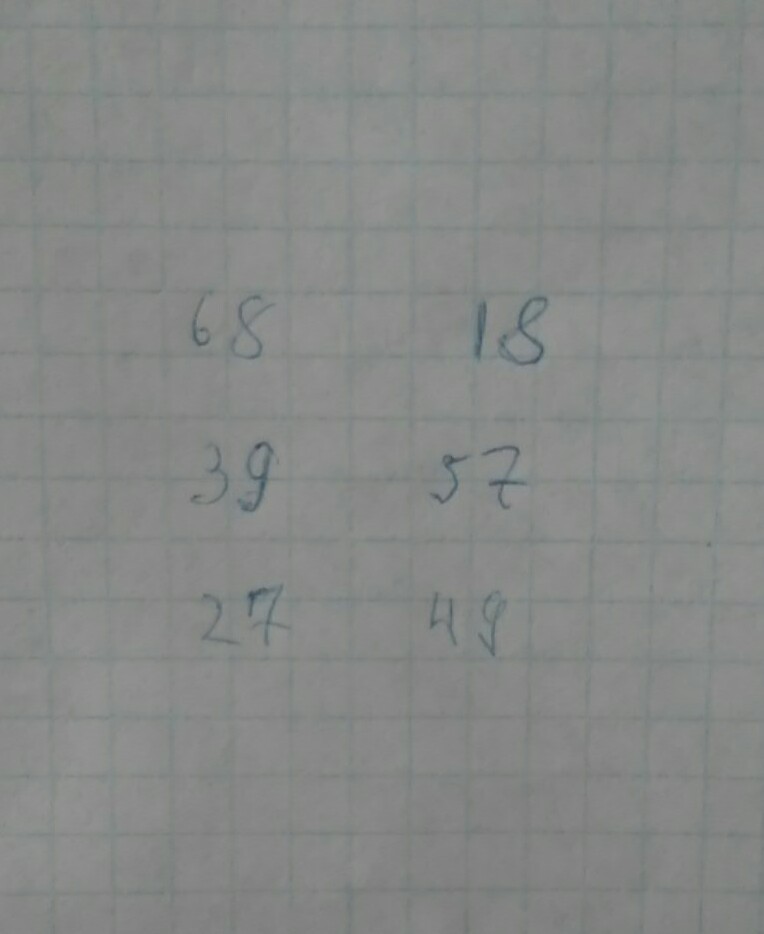 68 18
39 57
27 49